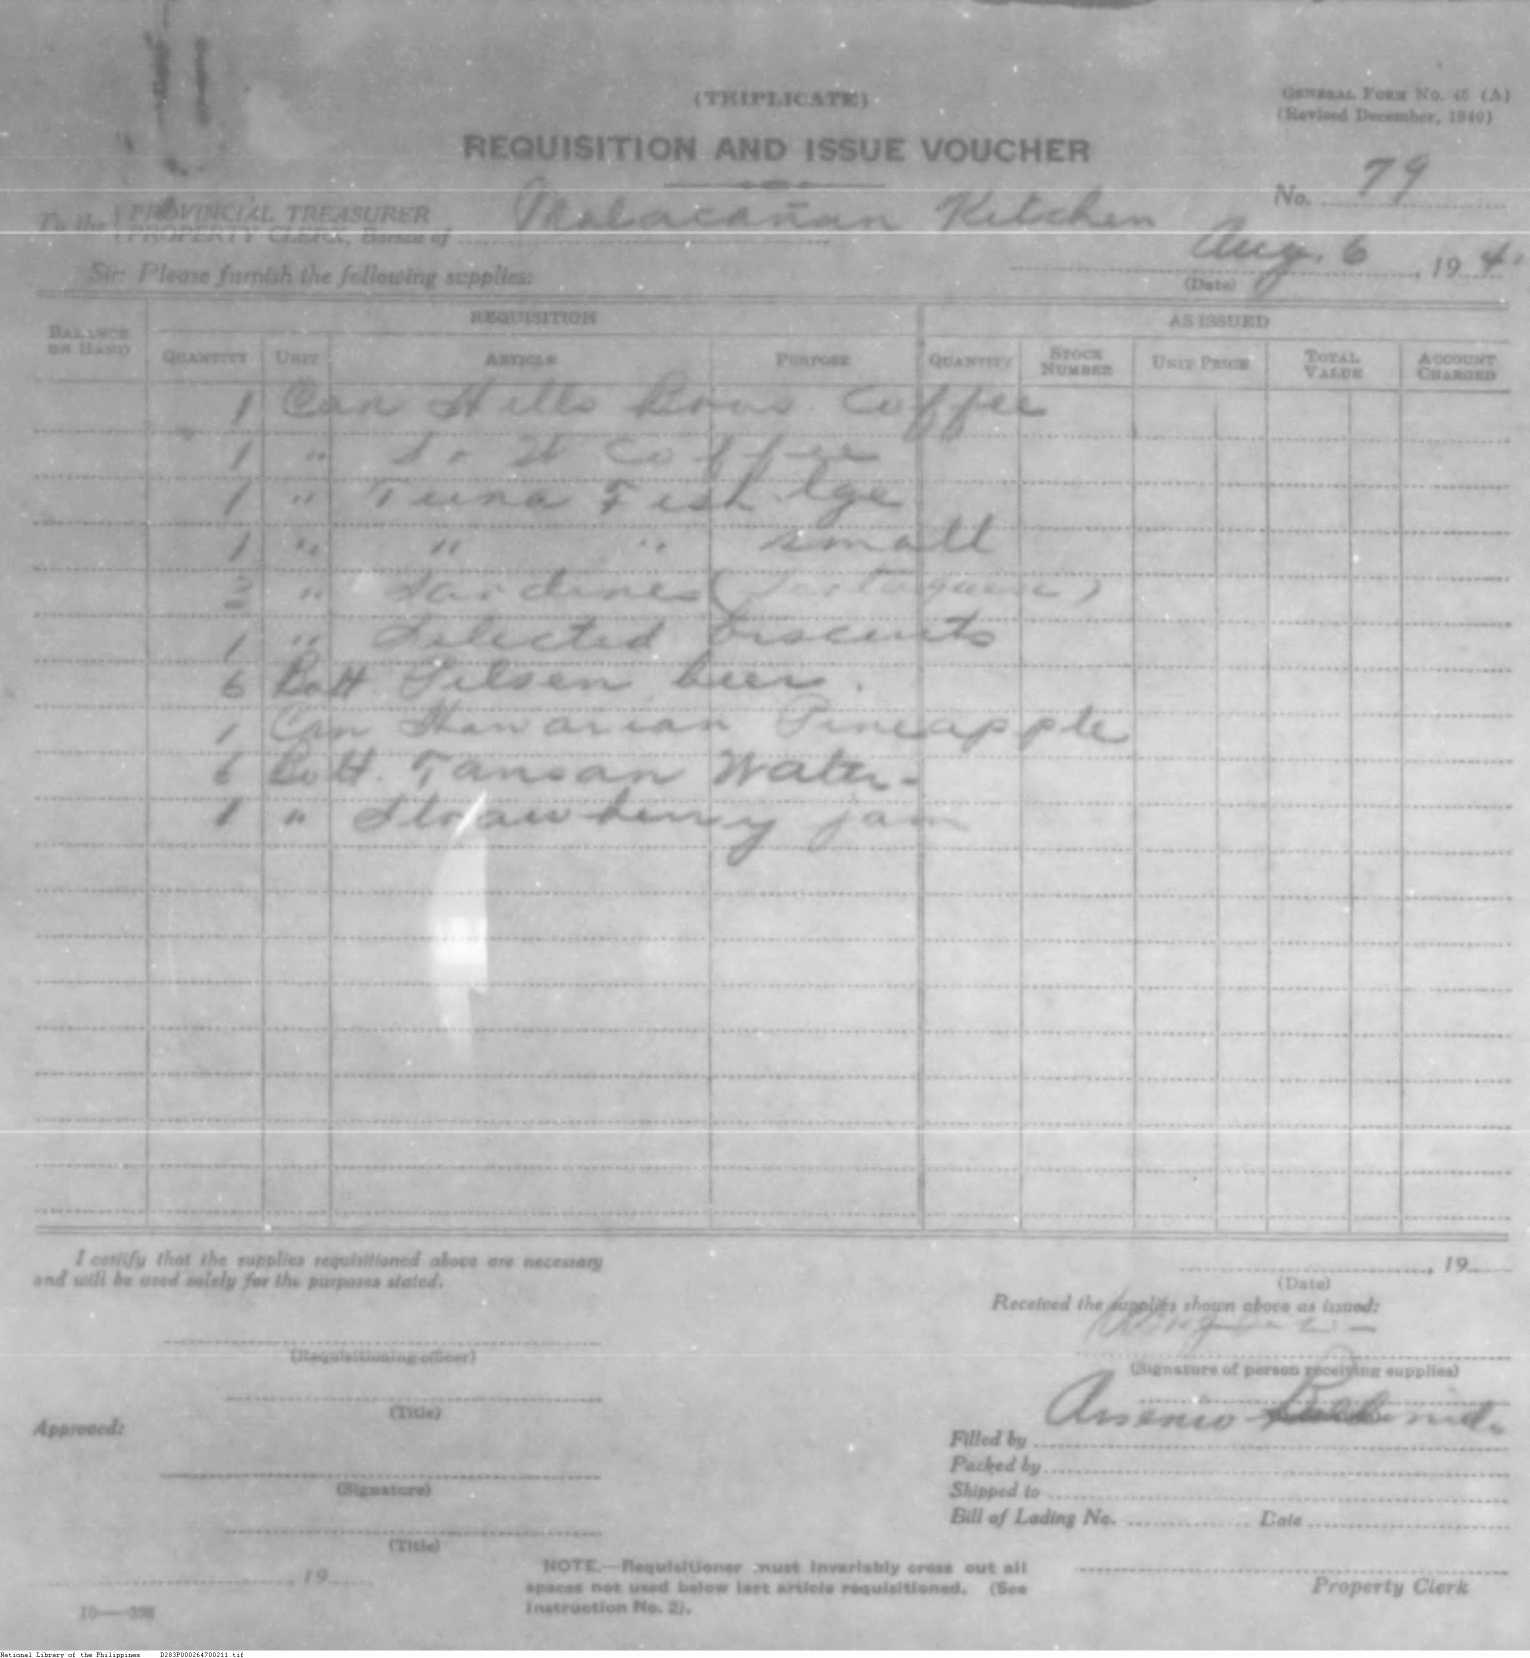 (TRIPLICATE)
GENERAL FORM No. 45 (A)
(Revised December, 1940)
REQUISITION AND ISSUE VOUCHER
No. 79
To the PROVINCIAL TREASURER
PROPERTY CLERK, Bureau of Malacañan Kitchen
Aug. 6, 194
(Date)
Sir: Please furnish the following supplies:
BALANCE ON HAND REQUISITION AS ISSUED
QUANTITY UNIT ARTICLE PURPOSE QUANTITY STOCK NUMBER UNIT PRICE TOTAL VALUE ACCOUNT CHARGED
1 Can Hills Bros. Coffee
1 " S. & W Coffee
1 " Tuna Fish lge
1 " " " small
" Sardines
1 " Selected biscuits
6 Bott. Pilsen beer.
1 Can Hawaiian Pineapple
6 Bott. Tansan Water-
1 " Strawberry jam
I certify that the supplies requisitioned above are necessary
and will be used solely for the purposes stated.
, 19
(Date)
Received the supplies shown above as issued:
(Requisitioning officer)
(Signature of person receiving supplies)
(Title)
Arsenio
Approved:
Filled by
Packed by
Shipped to
(Signature)
Bill of Lading No. Date
(Title)
, 19
NOTE.—Requisitioner must invariably cross out all
spaces not used below last article requisitioned. (See
Instruction No. 2).
Property Clerk
National Library of the Philippines D283P000264700211.tif